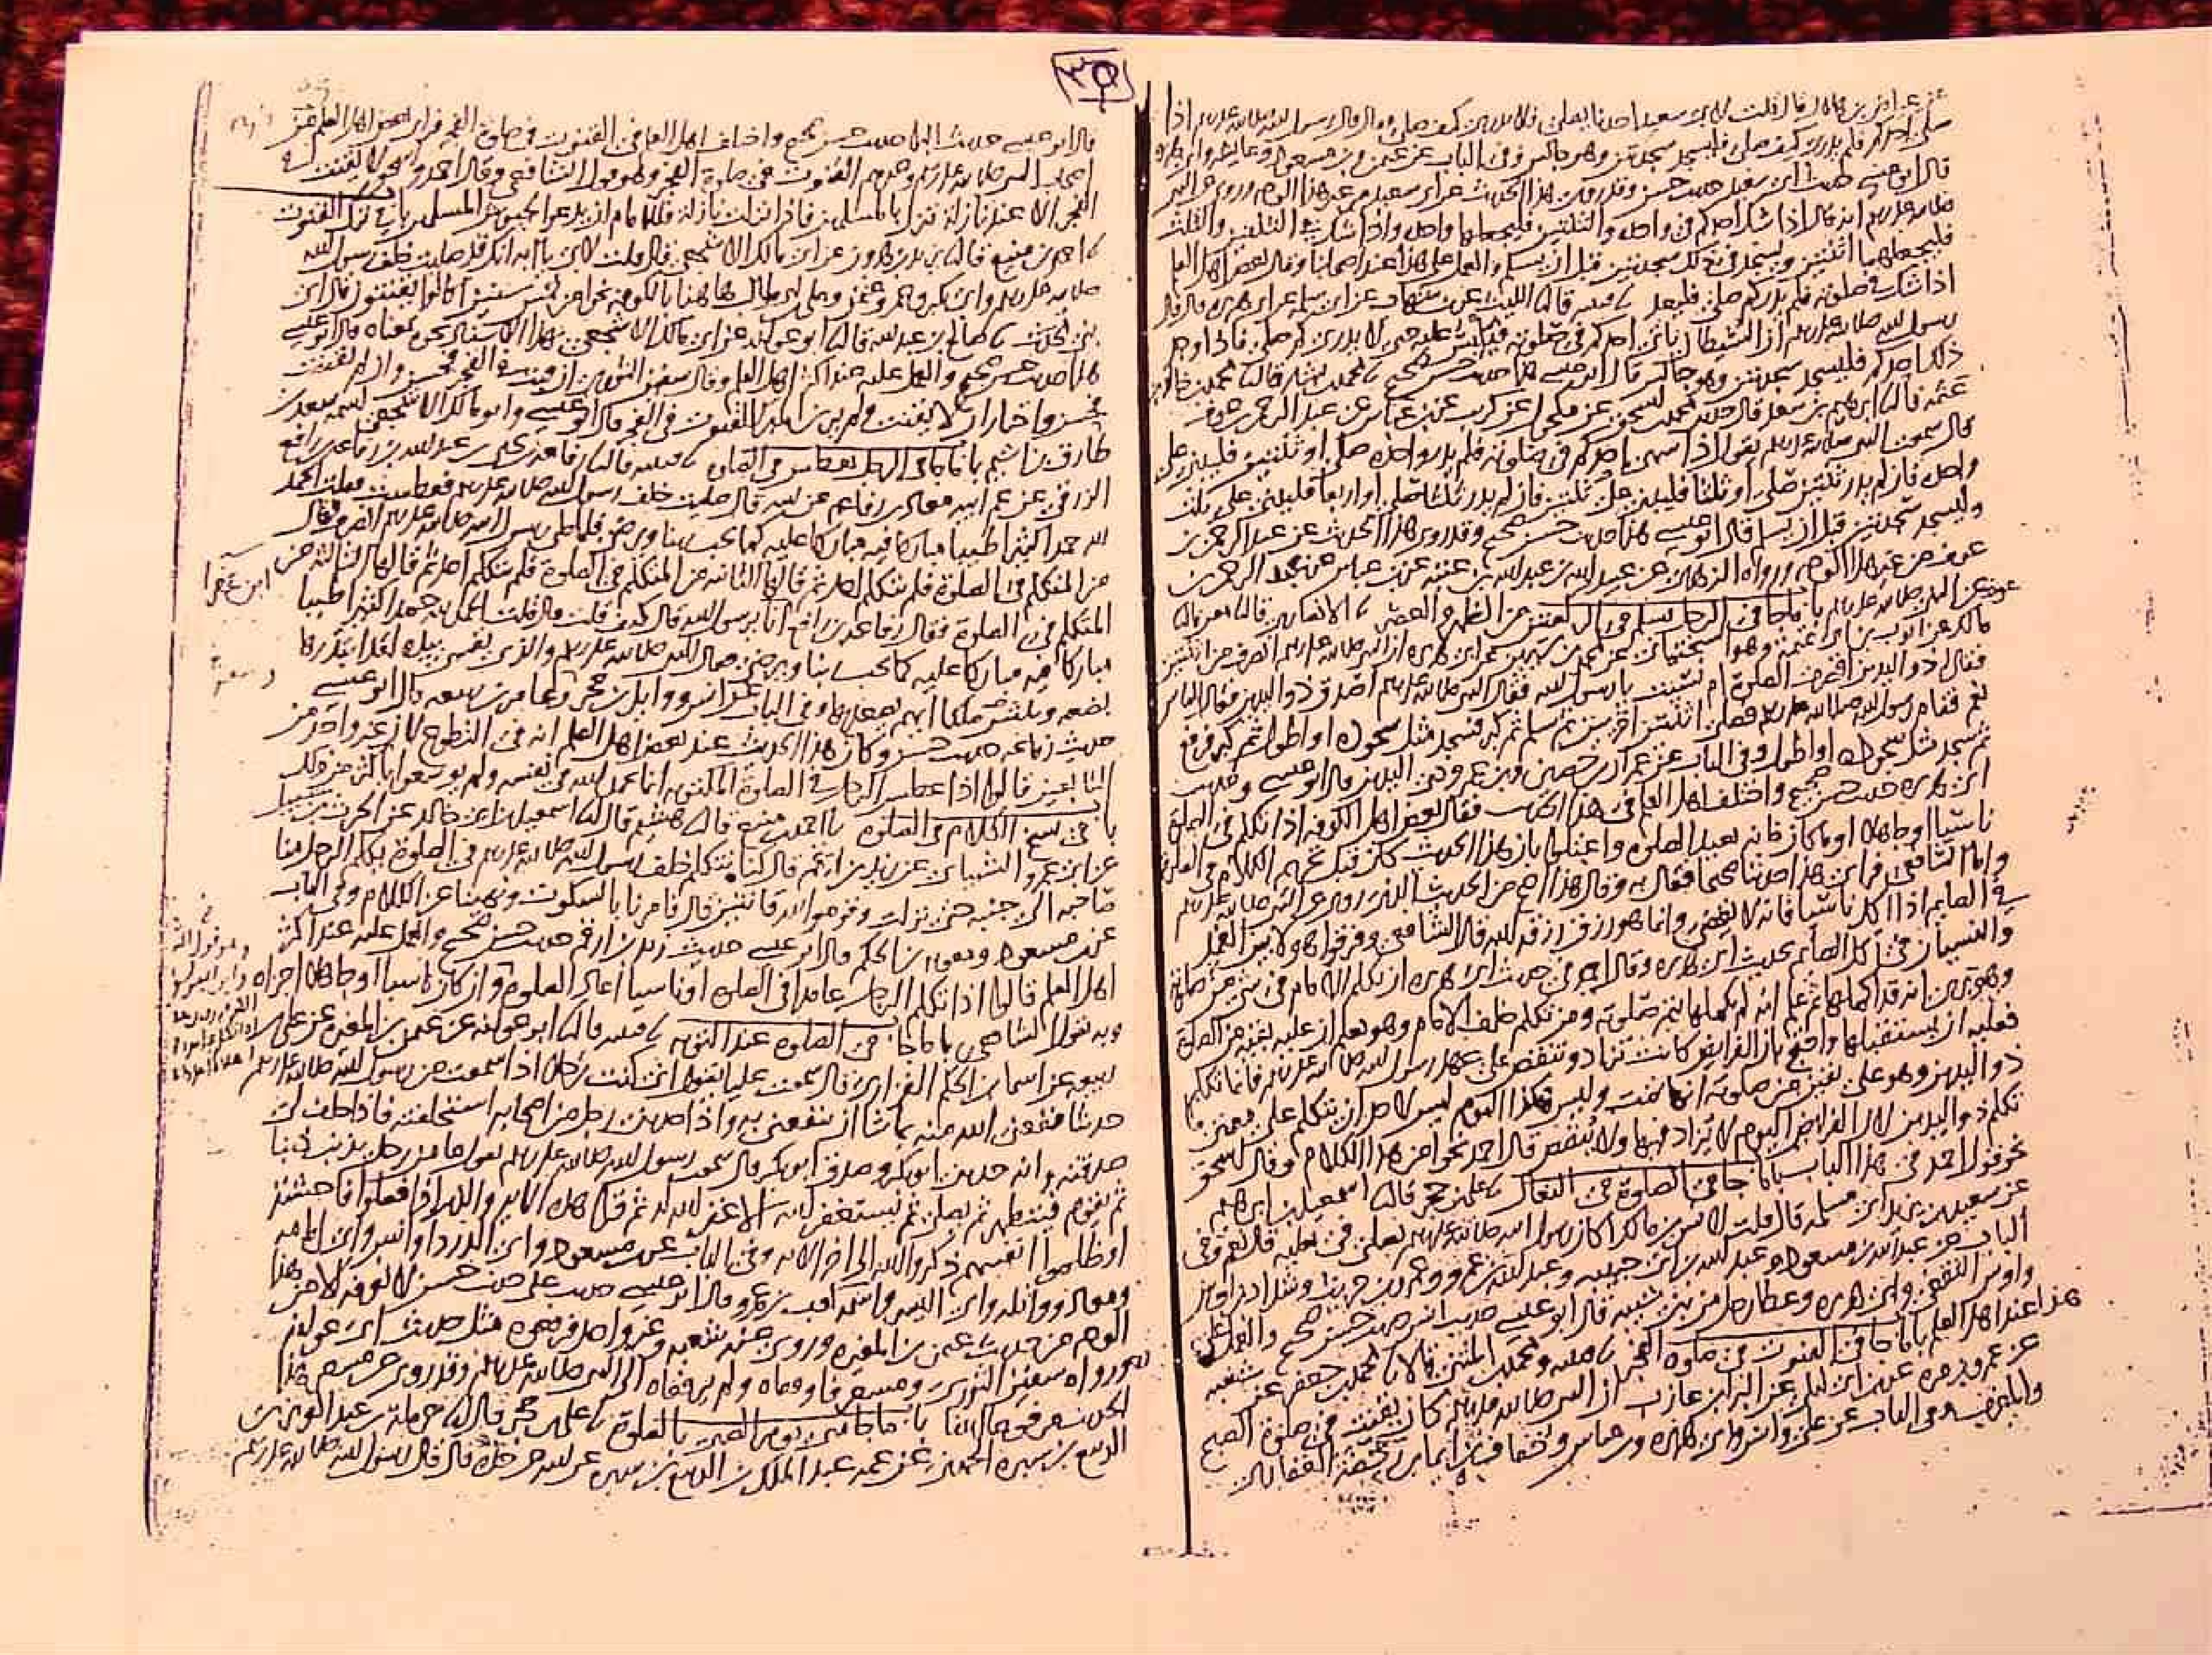 عن عياض بن هلال قال قلت لابي سعيد احدنا يصلي فلا يدري كيف صلى فقال قال رسول الله صلى الله عليه وسلم اذا
صلى احدكم فلم يدر كيف صلى فليسجد سجدتين وهو جالس وفي الباب عن عثمن وبن مسعود وعايشة وابي هريرة
قال ابو عيسى حديث ابي سعيد حديث حسن وقد روي هذا الحديث عن ابي سعيد من غير هذا الوجه وروي عن النبي
صلى الله عليه وسلم انه قال اذا شك احدكم في واحدة والثنتين فليجعلها واحدة واذا شك في الثنتين والثلث
فليجعلهما اثنتين ويسجد في ذلك سجدتين قبل ان يسلم والعمل على هذا عند اصحابنا وقال بعض اهل العلم
اذا شك في صلوته فلم يدر كم صلى فليعد قتيبة قال الليث عن بن شهاب عن ابي سلمة عن ابي هريرة قال قال
رسول الله صلى الله عليه وسلم ان الشيطان ياتي احدكم في صلوته فيلبس عليه حتى لا يدري كم صلى فاذا وجد
ذلك احدكم فليسجد سجدتين وهو جالس قال ابو عيسى هذا حديث حسن صحيح محمد بن بشار قال محمد بن خالد بن
عثمة قال ابرهيم بن سعد قال محمد بن اسحق عن مكحول عن كريب عن بن عباس عن عبد الرحمن بن عوف
قال سمعت النبي صلى الله عليه وسلم يقول اذا سهى احدكم في صلوته فلم يدر واحدة صلى او ثنتين فليبن على
واحدة فان لم يدر ثنتين صلى او ثلثا فليبن على ثنتين فان لم يدر ثلثا صلى او اربعا فليبن على ثلث
وليسجد سجدتين قبل ان يسلم قال ابو عيسى هذا حديث حسن صحيح وقد روي هذا الحديث عن عبد الرحمن بن
عوف من غير هذا الوجه ورواه الزهري عن عبيد الله بن عبد الله بن عتبة عن بن عباس عن عبد الرحمن بن
عوف عن النبي صلى الله عليه وسلم باب ما جا في الرجل يسلم في الركعتين من الظهر والعصر الانصاري قال معن قال
مالك عن ايوب بن ابي تميمة وهو السختياني عن محمد بن سيرين عن ابي هريرة ان النبي صلى الله عليه وسلم انصرف من اثنتين
فقال له ذو اليدين اقصرت الصلوة ام نسيت يا رسول الله فقال النبي صلى الله عليه وسلم اصدق ذو اليدين فقال الناس
نعم فقام رسول الله صلى الله عليه وسلم فصلى اثنتين اخريين ثم سلم ثم كبر فسجد مثل سجوده او اطول ثم كبر فرفع
ثم سجد مثل سجوده او اطول وفي الباب عن عمران بن حصين وبن عمر وذي اليدين قال ابو عيسى وحديث
ابي هريرة حديث حسن صحيح واختلف اهل العلم في هذا الحديث فقال بعض اهل الكوفة اذا تكلم في الصلوة
ناسيا او جاهلا او ما كان فانه يعيد الصلوة واعتلوا بان هذا الحديث كان قبل تحريم الكلام في الصلوة
واما الشافعي فراى هذا حديثا صحيحا فقال به وقال هذا اصح من الحديث الذي روي عن النبي صلى الله عليه وسلم
في الصايم اذا اكل ناسيا فانه لا يقضي وانما هو رزق رزقه الله قال الشافعي وفرقوا هولا بين العمد
والنسيان في اكل الصائم بحديث ابي هريرة وقال احمد في حديث ابي هريرة ان تكلم الامام في شي من صلوته
وهو يرى انه قد اكملها ثم علم انه لم يكملها يتم صلوته ومن تكلم خلف الامام وهو يعلم ان عليه بقية من الصلوة
فعليه ان يستقبلها واحتج بان الفرايض كانت تزاد وتنقص على عهد رسول الله صلى الله عليه وسلم فانما تكلم
ذو اليدين وهو على يقين من صلوته انها تمت وليس هكذا اليوم ليس لاحد ان يتكلم على معنى ما
تكلم ذو اليدين لان الفرايض اليوم لا يزاد فيها ولا ينقص قال احمد نحوا من هذا الكلام وقال اسحق
نحو قول احمد في هذا الباب باب ما جا في الصلوة في النعال علي بن حجر قال اسمعيل بن ابرهيم
عن سعيد بن يزيد ابي مسلمة قال قلت لانس بن مالك اكان رسول الله صلى الله عليه وسلم يصلي في نعليه قال نعم وفي
الباب عن عبد الله بن مسعود وعبد الله بن ابي حبيبة وعبد الله بن عمرو وعمرو بن حريث وشداد بن اوس
واوس الثقفي وابي هريرة وعطا رجل من بني شيبة قال ابو عيسى حديث انس حديث حسن صحيح والعمل على
هذا عند اهل العلم باب ما جا في القنوت في صلوة الفجر قتيبة ومحمد بن المثنى قالا محمد بن جعفر عن شعبة
عن عمرو بن مرة عن بن ابي ليلى عن البرا بن عازب ان النبي صلى الله عليه وسلم كان يقنت في صلوة الصبح
والمغرب وفي الباب عن علي وانس وابي هريرة وبن عباس وخفاف بن ايما بن رحضة الغفاري
٣٥
قال ابو عيسى حديث البرا حديث حسن صحيح واختلف اهل العلم في القنوت في صلوة الفجر فراى بعض اهل العلم من
اصحاب النبي صلى الله عليه وسلم وغيرهم القنوت في صلوة الفجر وهو قول الشافعي وقال احمد واسحق لا يقنت في
الفجر الا عند نازلة تنزل بالمسلمين فاذا نزلت نازلة فللامام ان يدعو لجيوش المسلمين باب في ترك القنوت
احمد بن منيع قال يزيد بن هرون عن ابي مالك الاشجعي قال قلت لابي يا ابه انك قد صليت خلف رسول الله
صلى الله عليه وسلم وابي بكر وعمر وعثمن وعلي بن ابي طالب هاهنا بالكوفة نحوا من خمس سنين اكانوا يقنتون قال اي
بني محدث صالح بن عبد الله قال ابو عوانة عن ابي مالك الاشجعي بهذا الاسناد نحوه بمعناه قال ابو عيسى
هذا حديث حسن صحيح والعمل عليه عند اكثر اهل العلم وقال سفين الثوري ان قنت في الفجر فحسن وان لم يقنت
فحسن واختار ان لا يقنت ولم ير بن المبارك القنوت في الفجر قال ابو عيسى وابو مالك الاشجعي اسمه سعد بن
طارق بن اشيم باب ما جا في الرجل يعطس في الصلوة قتيبة قال رفاعة بن يحيى بن عبد الله بن رفاعة بن رافع
الزرقي عن عم ابيه معاذ بن رفاعة عن ابيه قال صليت خلف رسول الله صلى الله عليه وسلم فعطست فقلت الحمد
لله حمدا كثيرا طيبا مباركا فيه مباركا عليه كما يحب ربنا ويرضى فلما صلى رسول الله صلى الله عليه وسلم انصرف فقال
من المتكلم في الصلوة فلم يتكلم احد ثم قالها الثانية من المتكلم في الصلوة فلم يتكلم احد ثم قالها الثالثة من
المتكلم في الصلوة فقال رفاعة بن رافع انا يرسول الله قال كيف قلت قال قلت الحمد لله حمدا كثيرا طيبا
ابن عفرا
مباركا فيه مباركا عليه كما يحب ربنا ويرضى فقال النبي صلى الله عليه وسلم والذي نفسي بيده لقد ابتدرها
بضعة وثلثون ملكا ايهم يصعد بها وفي الباب عن انس ووايل بن حجر وعامر بن ربيعة قال ابو عيسى
حديث رفاعة حديث حسن وكان هذا الحديث عند بعض اهل العلم انه في التطوع لان غير واحد من
التابعين قالوا اذا عطس الرجل في الصلوة المكتوبة انما يحمد الله في نفسه ولم يوسعوا باكثر من ذلك
باب في نسخ الكلام في الصلوة احمد بن منيع قال هشيم قال اسمعيل بن ابي خالد عن الحرث بن شبيل
عن ابي عمرو الشيباني عن زيد بن ارقم قال كنا نتكلم خلف رسول الله صلى الله عليه وسلم في الصلوة يكلم الرجل منا
صاحبه الى جنبه حتى نزلت وقوموا لله قانتين قال فامرنا بالسكوت ونهينا عن الكلام وفي الباب
عن بن مسعود ومعوية بن الحكم قال ابو عيسى حديث زيد بن ارقم حديث حسن صحيح والعمل عليه عند اكثر
اهل العلم قالوا اذا تكلم الرجل عامدا في الصلوة او ناسيا اعاد الصلوة وان كان ناسيا او جاهلا اجزاه
وبه يقول الشافعي باب ما جا في الصلوة عند التوبة قتيبة قال ابو عوانة عن عثمن بن المغيرة عن علي بن
ربيعة عن اسما بن الحكم الفزاري قال سمعت عليا يقول اني كنت رجلا اذا سمعت من رسول الله صلى الله عليه وسلم
حديثا نفعني الله منه بما شا ان ينفعني به واذا حدثني رجل من اصحابه استحلفته فاذا حلف لي
صدقته وانه حدثني ابو بكر وصدق ابو بكر قال سمعت رسول الله صلى الله عليه وسلم يقول ما من رجل يذنب ذنبا
ثم يقوم فيتطهر ثم يصلي ثم يستغفر الله الا غفر الله له ثم قرا هذه الاية والذين اذا فعلوا فاحشة
او ظلموا انفسهم ذكروا الله الى اخر الاية وفي الباب عن بن مسعود وابي الدردا وانس وابي امامة
ومعاذ وواثلة وابي اليسر واسمه كعب بن عمرو قال ابو عيسى حديث علي حديث حسن لا نعرفه الا من هذا
الوجه من حديث عثمن بن المغيرة وروى عنه شعبة وغير واحد فرفعوه مثل حديث ابي عوانة
ورواه سفين الثوري ومسعر فاوقفاه ولم يرفعاه الى النبي صلى الله عليه وسلم وقد روي عن مسعر هذا
الحديث مرفوعا ايضا باب ما جا متى يومر الصبي بالصلوة علي بن حجر قال حرملة بن عبد العزيز بن
الربيع بن سبرة الجهني عن عمه عبد الملك بن الربيع بن سبرة عن ابيه عن جده قال قال رسول الله صلى الله عليه وسلم